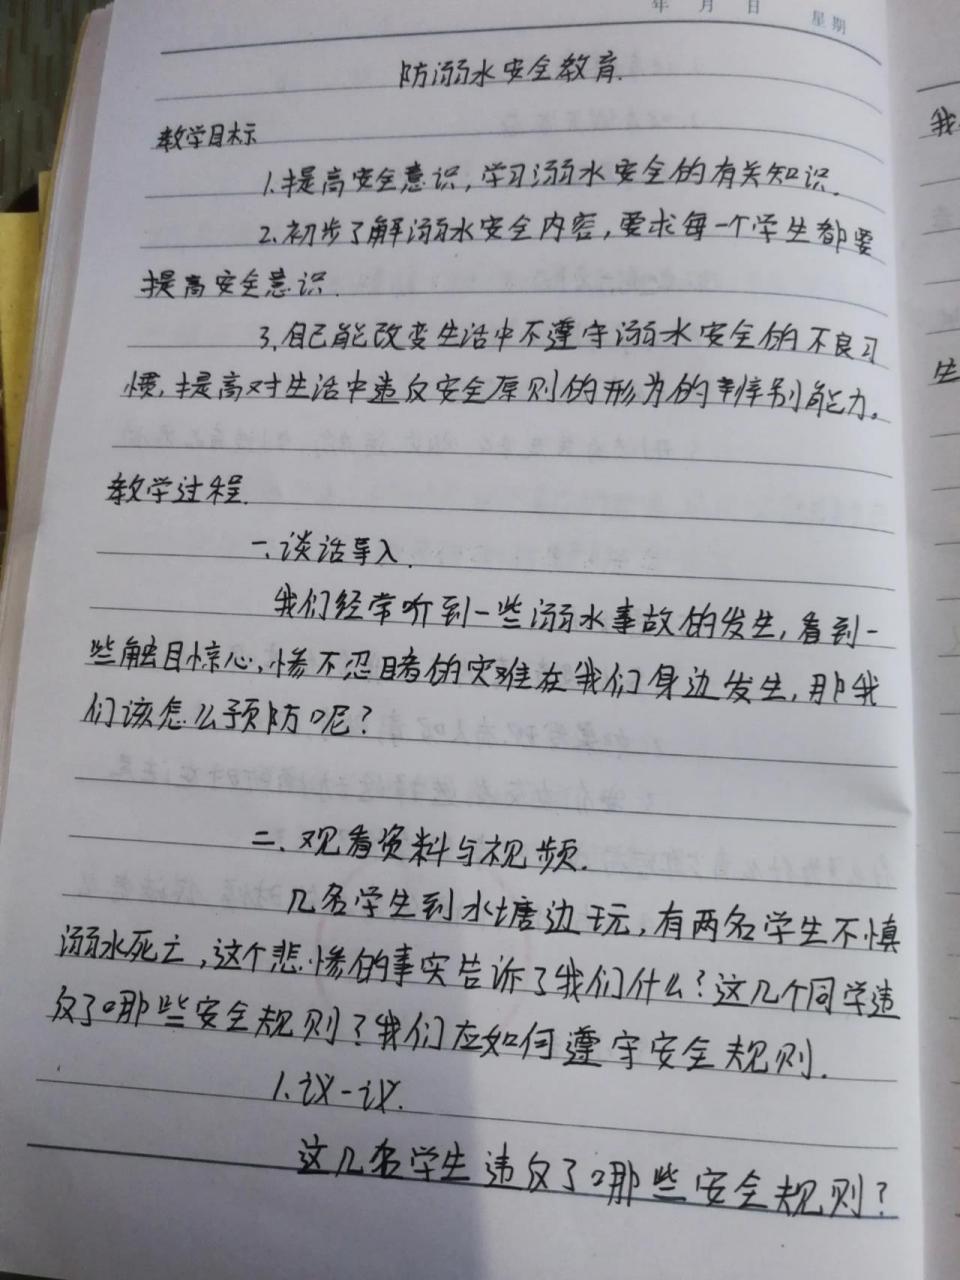 年 月 日 星期
防溺水安全教育.
教学目标
1.提高安全意识,学习溺水安全的有关知识.
2.初步了解溺水安全内容,要求每一个学生都要
提高安全意识.
3.自己能改变生活中不遵守溺水安全的不良习
惯,提高对生活中违反安全原则的形为的辨别能力。
教学过程.
一、谈话导入.
我们经常听到一些溺水事故的发生,看到一
些触目惊心,惨不忍睹的灾难在我们身边发生,那我
们该怎么预防呢?
二、观看资料与视频.
几名学生到水塘边玩,有两名学生不慎
溺水死亡,这个悲惨的事实告诉了我们什么?这几个同学违
反了哪些安全规则?我们应如何遵守安全规则.
1.议一议.
这几名学生违反了哪些安全规则?
我
生